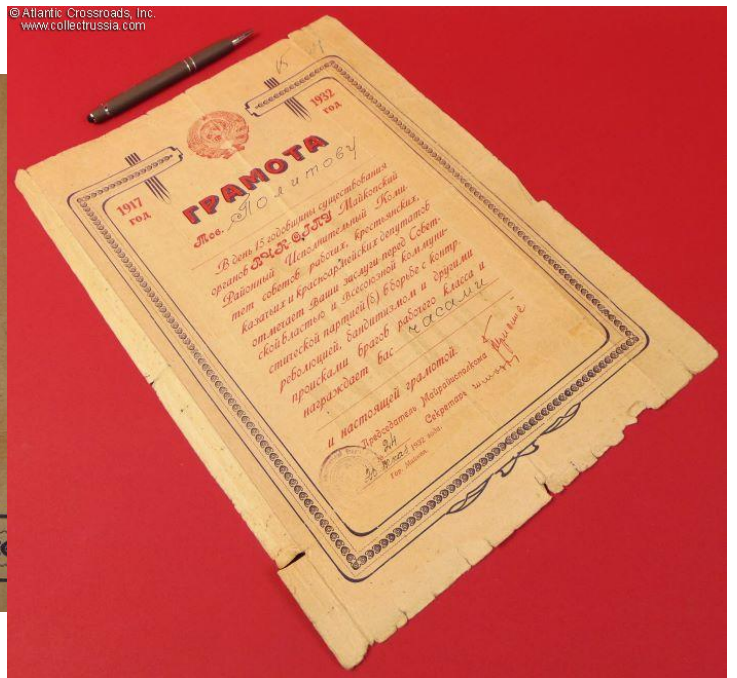 © Atlantic Crossroads, Inc.
www.collectrussia.com
1917 год
1932 год
ГРАМОТА
Тов. Политову
В день 15 годовщины существования
органов ВЧК-ОГПУ Майкопский
Районный Исполнительный Коми-
тет советов рабочих, крестьянских,
казачьих и красноармейских депутатов
отмечает Ваши заслуги перед Совет-
ской властью и Всесоюзной коммуни-
стической партией(б) в борьбе с контр
революцией, бандитизмом и другими
происками врагов рабочего класса и
награждает вас часами
и настоящей грамотой.
Председатель Майрайисполкома
Секретарь
1932 года.
Гор. Майкоп.